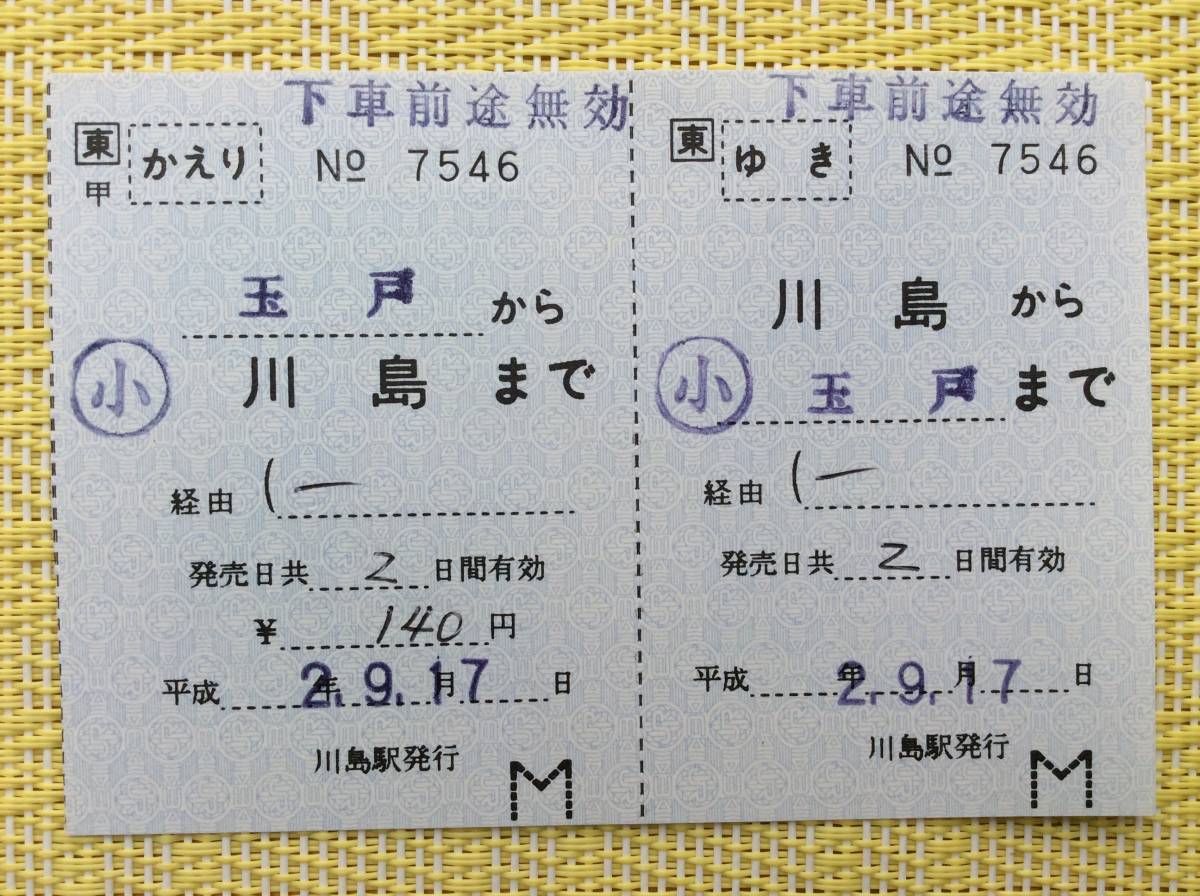 下車前途無効
東 かえり № 7546
甲
玉戸から
小 川島まで
経由 (一
発売日共2日間有効
¥140円
平成2年9.月17日
川島駅発行
M
下車前途無効
東 ゆき № 7546
川島から
小 玉戸まで
経由 (一
発売日共2日間有効
平成2.年9.月17日
川島駅発行
M